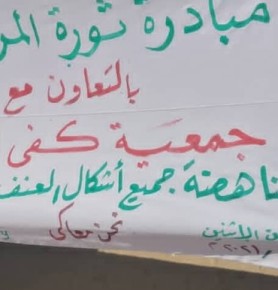 مبادرة ثورة المر
بالتعاون مع
جمعية كفى
ناهضة جميع أشكال العنف
نحن معاكي
الإثنين